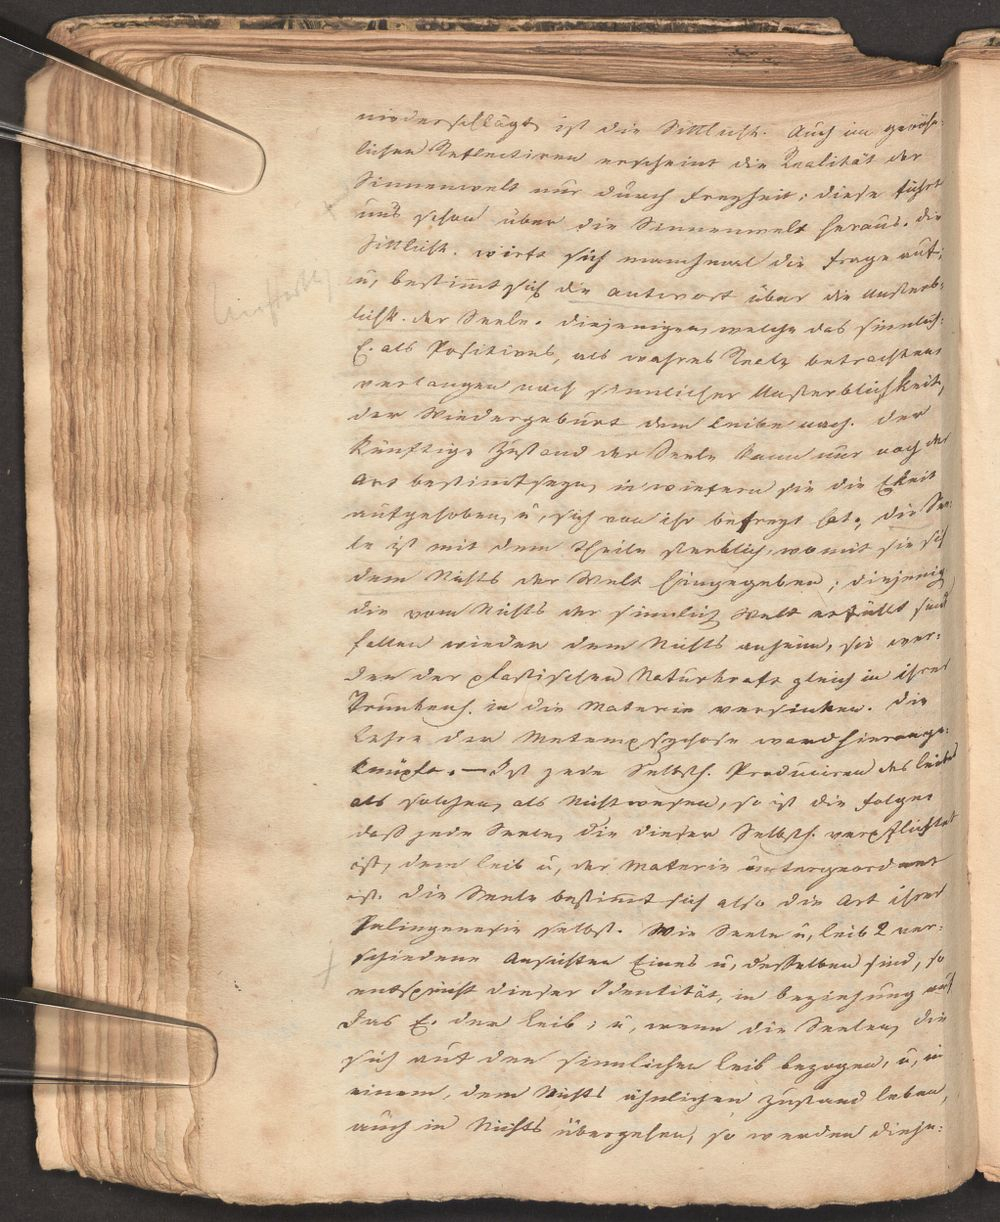 niederschlägt, ist die Sittlichk. Auch im gewöhn-
lichen Reflectiren erscheint die Realität der
Sinnenwelt nur durch Freyheit; diese führt
uns schon über die Sinnenwelt heraus. Die
Sittlichk. wirft sich manchmal die Frage auf,
u, bestimt sich die Antwort über die Unsterb-
lichk. der Seele. Diejenigen, welche das sinnlich:
E. als Positives, als wahres Reelle betrachten
verlangen nach sinnlicher Unsterblichkeit,
der Wiedergeburt dem Leibe nach. Der
künftige Zustand der Seele kann nur nach der
Art bestimt seyn, in wiefern sie die Ekeit
aufgehoben, u, sich von ihr befreyt hat. Die See-
le ist mit dem Theile sterblich, womit sie sich
dem Nichts der Welt hingegeben; diejenig
die vom Nichts der sinnlich Welt erfüllt sind
fallen wieder dem Nichts anheim, sie wer-
den der plastischen Naturkraft gleich in ihrer
Trunkenh. in die Materie versinken. Die
Lehre der Metempsychose ward hieran ge-
knüpft. — Ist jede Selbsth. Produciren des Leibes
als solchen, als Nichtwesen, so ist die Folge,
daß jede Seele, die dieser Selbsth. verpflichtet
ist, dem Leib u, der Materie untergeordnet
ist. Die Seele bestimt sich also die Art ihrer
Palingenesie selbst. Wie Seele u, Leib 2 ver-
schiedene Ansichten Eines u, desselben sind, so
entspricht dieser Identität, in Beziehung auf
das E. der Leib; u, wenn die Seelen, die
sich auf den sinnlichen Leib bezogen, u, in
einem, dem Nichts ähnlichen Zustand leben,
auch in Nichts übergehen, so werden dieje-